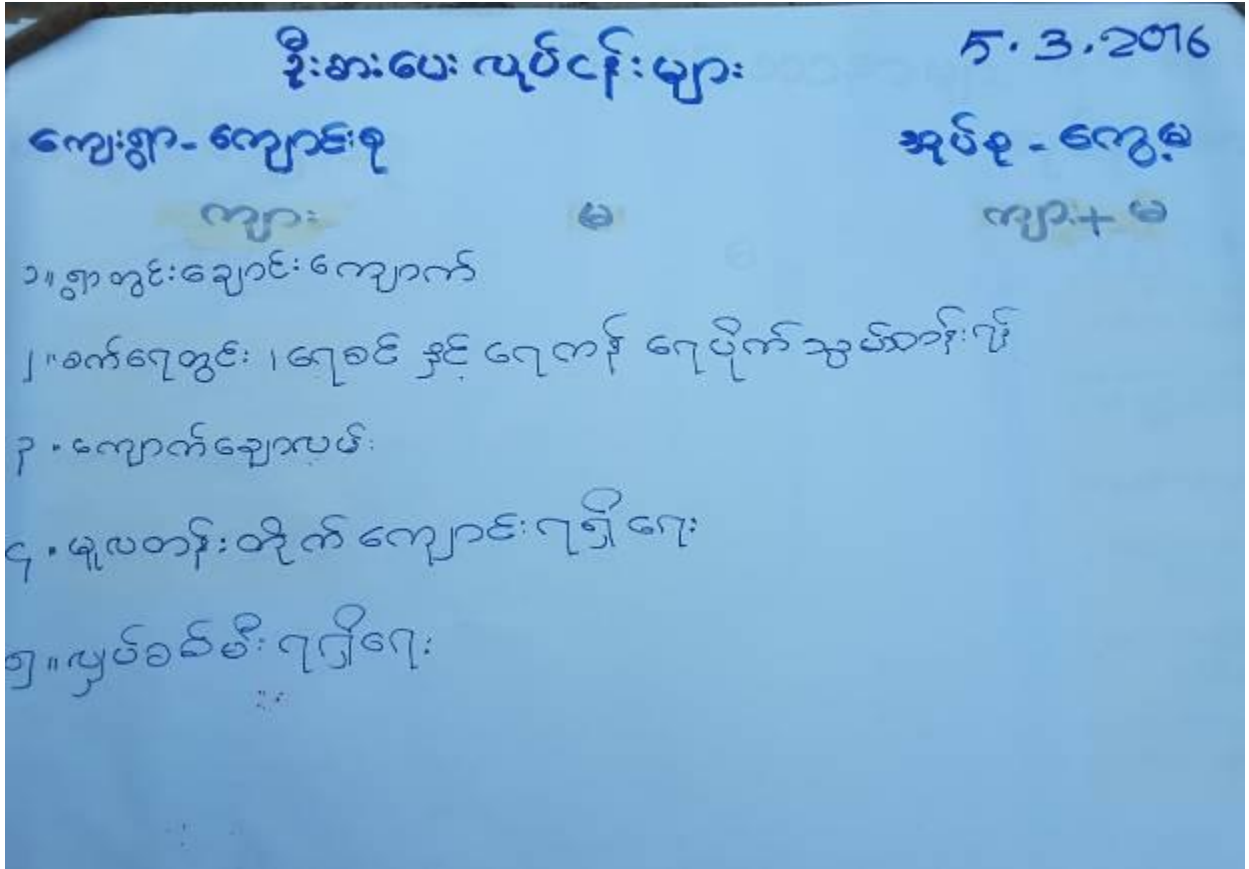 ဦးစားပေး လုပ်ငန်းများ 5.3.2016
ကျေးရွာ - ကျောင်းစု အုပ်စု - ကွေ့မ
ကျား မ ကျား + မ
၁။ ရွာတွင်းချောင်းကျောက်
၂။ စက်ရေတွင်း ၊ ရေစင် နှင့် ရေကန် ရေပိုက် သွယ်တန်းရန်
၃။ ကျောက်ချောလမ်း
၄။ မူလတန်း တိုက် ကျောင်း ရရှိ ရေး
၅။ လျှပ်စစ်မီး ရရှိရေး